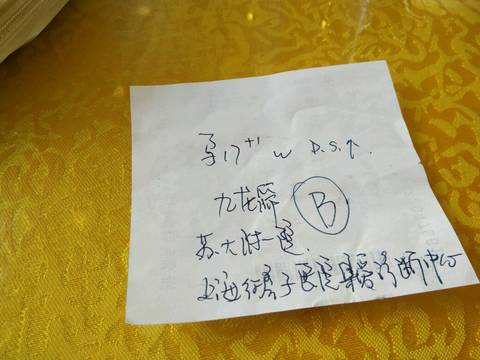 孕17⁺¹ w D.S.T.
九龙
B
苏大附一医
上海红房子医院 诊断中心